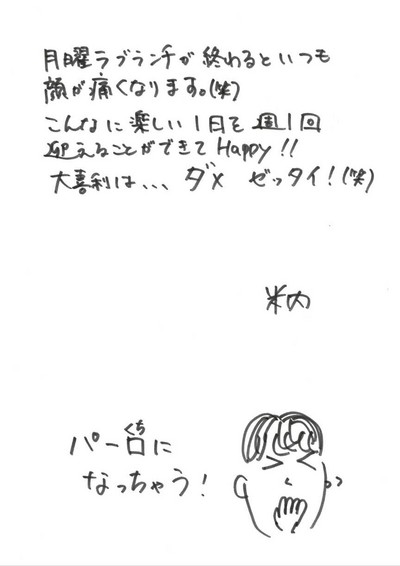 月曜ラブランチが終わるといつも
顔が痛くなります。(笑)
こんなに楽しい1日を週1回
迎えることができてHappy!!
大喜利は、、、ダメ ゼッタイ!(笑)
米内
パー口に
くち
なっちゃう!